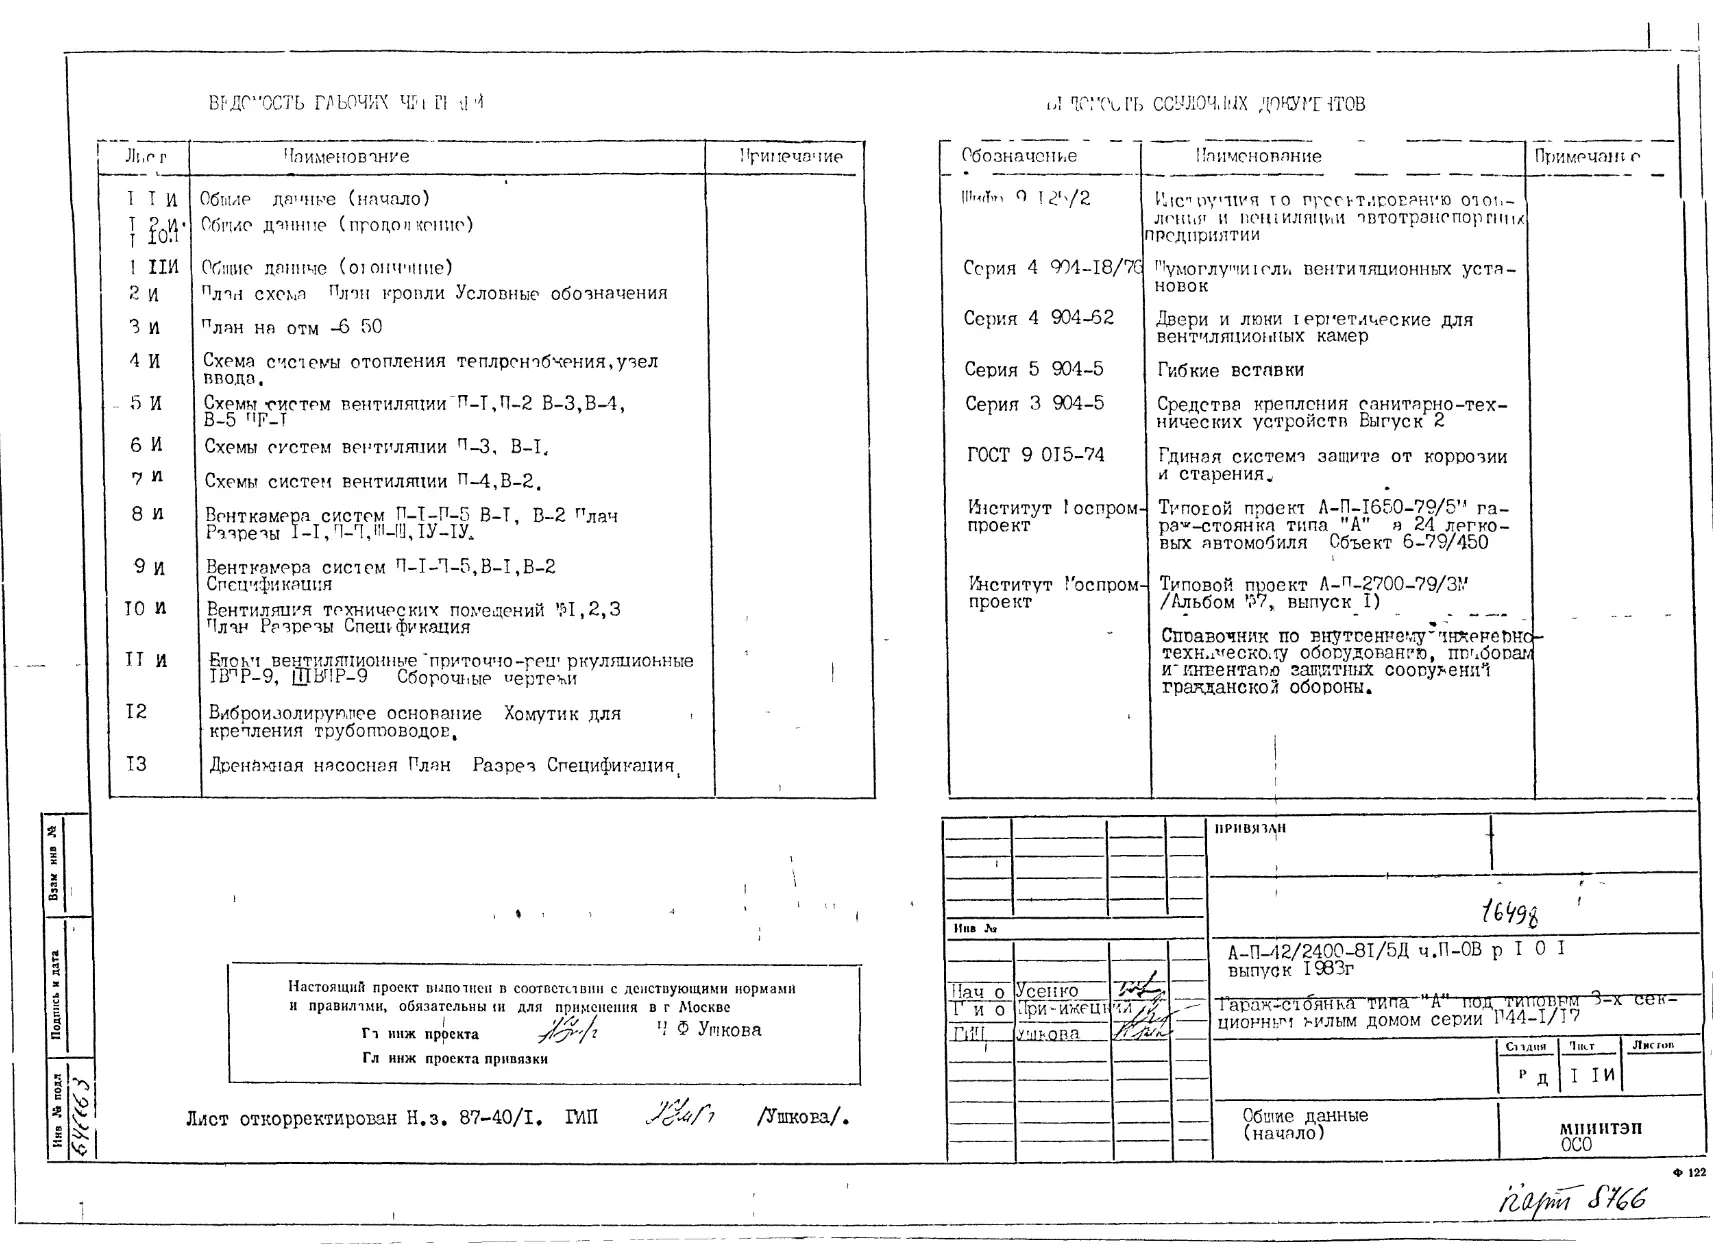 ССЫЛОЧНЫХ ДОКУМЕНТОВ
Лист Наименование Примечание
I I И Общие данные (начало)
Общие данные (продолжение)
I IIИ Общие данные (окончание)
2 И План схема План кровли Условные обозначения
3 И План на отм -6 50
4 И Схема системы отопления теплоснабжения, узел
ввода.
5 И Схемы систем вентиляции П-I,П-2 В-3,В-4,
В-5
6 И Схемы систем вентиляции П-3, В-I.
7 И Схемы систем вентиляции П-4,В-2.
8 И Венткамера систем П-I-П-5 В-I, В-2 План
Разрезы I-I,П-П,Ш-Ш,IУ-IУ.
9 И Венткамера систем П-I-П-5,В-I,В-2
Спецификация
I0 И Вентиляция технических помещений №1,2,3
План Разрезы Спецификация
II И Блоки вентиляционные приточно-рециркуляционные
Сборочные чертежи
I2 Виброизолирующее основание Хомутик для
крепления трубопроводов.
I3 Дренажная насосная План Разрез Спецификация
Обозначение Наименование Примечание
Инструкция по проектированию отоп-
ления и вентиляции автотранспортных
предприятий
Серия 4 904-I8/76 Шумоглушители вентиляционных уста-
новок
Серия 4 904-62 Двери и люки герметические для
вентиляционных камер
Серия 5 904-5 Гибкие вставки
Серия 3 904-5 Средства крепления санитарно-тех-
нических устройств Выпуск 2
ГОСТ 9 0I5-74 Единая система защита от коррозии
и старения.
Институт Госпром- Типовой проект А-П-I650-79/5 га-
проект раж-стоянка типа "А" на 24 легко-
вых автомобиля Объект 6-79/450
Институт Госпром- Типовой проект А-П-2700-79/3
проект /Альбом №7, выпуск I)
Справочник по внутреннему инженерно-
техническому оборудованию, приборам
и инвентарю защитных сооружений
гражданской обороны.
Взам инв №
Подпись и дата
Инв № подл
Настоящий проект выполнен в соответствии с действующими нормами
и правилами, обязательными для применения в г Москве
Гл инж проекта Ушкова
Гл инж проекта привязки
Лист откорректирован Н.з. 87-40/I. ГИП /Ушкова/.
ПРИВЯЗАН
16498
Инв №
А-П-42/2400-8I/5Д ч.П-ОВ р I 0 I
выпуск I983г
Нач о Усенко
ГИП Ушкова
Гараж-стоянка типа "А" под типовым 3-х сек-
ционным жилым домом серии П44-I/I7
Стадия Лист Листов
Р Д I IИ
Общие данные
(начало)
МНИИТЭП
ОСО
Ф 122
8766